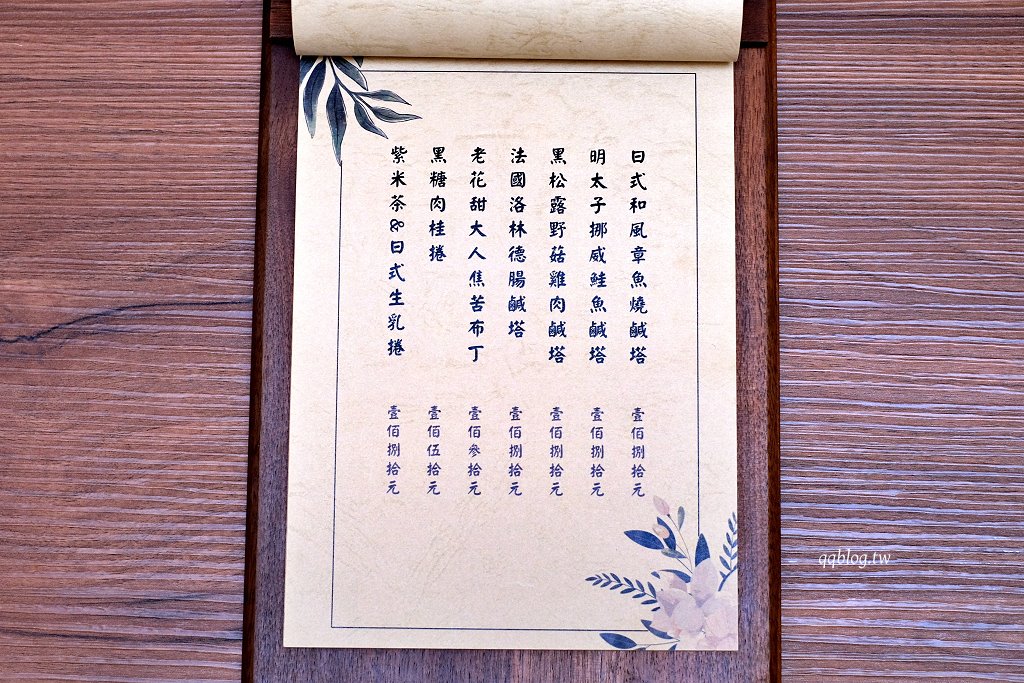 日式和風章魚燒鹹塔 壹佰捌拾元
明太子挪威鮭魚鹹塔 壹佰捌拾元
黑松露野菇雞肉鹹塔 壹佰捌拾元
法國洛林德腸鹹塔 壹佰捌拾元
老花甜大人焦苦布丁 壹佰參拾元
黑糖肉桂捲 壹佰伍拾元
紫米茶&日式生乳捲 壹佰捌拾元
qqblog.tw